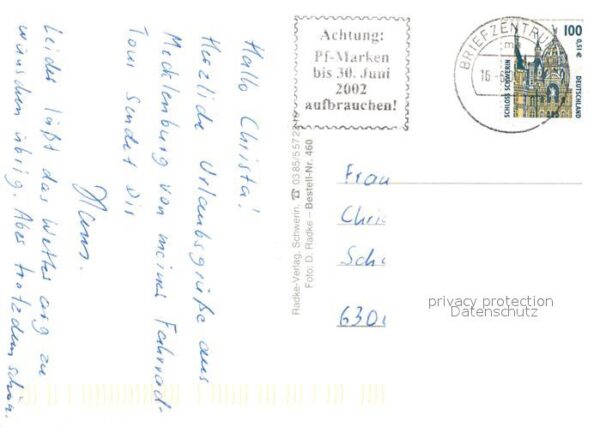 Hallo Christa!
Herzliche Urlaubsgrüße aus
Mecklenburg von meiner Fahrrad-
Tour sendet Dir
Hans.
Leider läßt das Wetter arg zu
wünschen übrig. Aber trotzdem schön.
Radke-Verlag, Schwerin, ☎ 03 85/5 57 22
Foto: D. Radke – Bestell-Nr. 460
Achtung:
Pf-Marken
bis 30. Juni
2002
aufbrauchen!
BRIEFZENTRUM
16.-6.
100
0,51€
SCHLOSS SCHWERIN
DEUTSCHLAND
Frau
Chris
Sch
630
privacy protection
Datenschutz